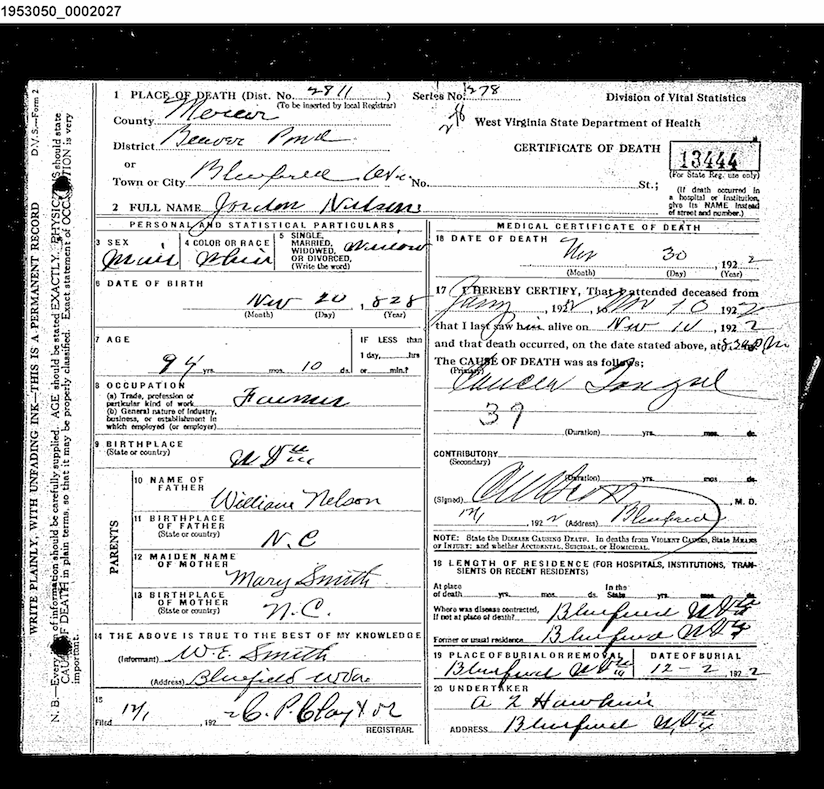 1953050_0002027
D.V.S.—Form 2
WRITE PLAINLY, WITH UNFADING INK—THIS IS A PERMANENT RECORD
N. B.—Every of information should be carefully supplied. AGE should be stated EXACTLY. PHYSIC S should state
CAUS OF DEATH in plain terms, so that it may be properly classified. Exact statement of OCC TION is very
important.
1 PLACE OF DEATH (Dist. No. 2811)
(To be inserted by local Registrar)
County Mercer
District Beaver Pond
or
Town or City Bluefield No. St.;
2 FULL NAME Jordon Nelson
Series No. 278
278
Division of Vital Statistics
West Virginia State Department of Health
CERTIFICATE OF DEATH
13444
(For State Reg. use only)
(If death occurred in
a hospital or institution,
give its NAME instead
of street and number.)
PERSONAL AND STATISTICAL PARTICULARS
3 SEX
4 COLOR OR RACE
5 SINGLE,
MARRIED,
WIDOWED,
OR DIVORCED,
(Write the word)
6 DATE OF BIRTH
Nov 20, 1828
(Month) (Day) (Year)
7 AGE
94 yrs. mos. 10 ds.
IF LESS than
1 day, hrs
or min.?
8 OCCUPATION
(a) Trade, profession or
particular kind of work
Farmer
(b) General nature of industry,
business, or establishment in
which employed (or employer)
9 BIRTHPLACE
(State or country)
PARENTS
10 NAME OF
FATHER
William Nelson
11 BIRTHPLACE
OF FATHER
(State or country)
N.C
12 MAIDEN NAME
OF MOTHER
Mary Smith
13 BIRTHPLACE
OF MOTHER
(State or country)
N.C.
14 THE ABOVE IS TRUE TO THE BEST OF MY KNOWLEDGE
(Informant) W.E. Smith
(Address) Bluefield W Va
15
Filed 12/1, 192 2 C. P. Clayton
REGISTRAR.
MEDICAL CERTIFICATE OF DEATH
16 DATE OF DEATH
Nov 30, 1922
(Month) (Day) (Year)
17 I HEREBY CERTIFY, That I attended deceased from
, 192 , to Nov 10 192
that I last saw him alive on Nov 10, 1922
and that death occurred, on the date stated above, at
The CAUSE OF DEATH was as follows:
(Primary)
Cancer
39
(Duration) yrs. mos. ds.
CONTRIBUTORY
(Secondary)
(Duration) yrs. mos. ds.
(Signed) , M. D.
12/1, 192 2 (Address) Bluefield
NOTE: State the DISEASE CAUSING DEATH. In deaths from VIOLENT CAUSES, State MEANS
OF INJURY: and whether ACCIDENTAL, SUICIDAL, or HOMICIDAL.
18 LENGTH OF RESIDENCE (FOR HOSPITALS, INSTITUTIONS, TRAN-
SIENTS OR RECENT RESIDENTS)
At place
of death yrs. mos. ds.
In the
State yrs. mos. ds.
Where was disease contracted,
if not at place of death? Bluefield W Va
Former or usual residence Bluefield W Va
19 PLACE OF BURIAL OR REMOVAL
Bluefield W Va
DATE OF BURIAL
12-2, 1922
20 UNDERTAKER
A Z Hawkins
ADDRESS Bluefield W. Va